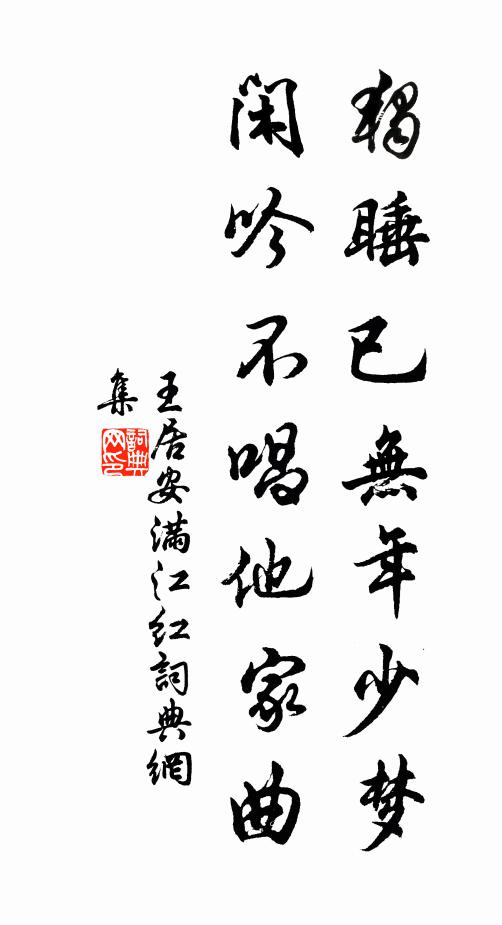 獨睡已無年少梦
閑吟不唱他家曲
王居安滿江红詞典網
集
詞典
网印